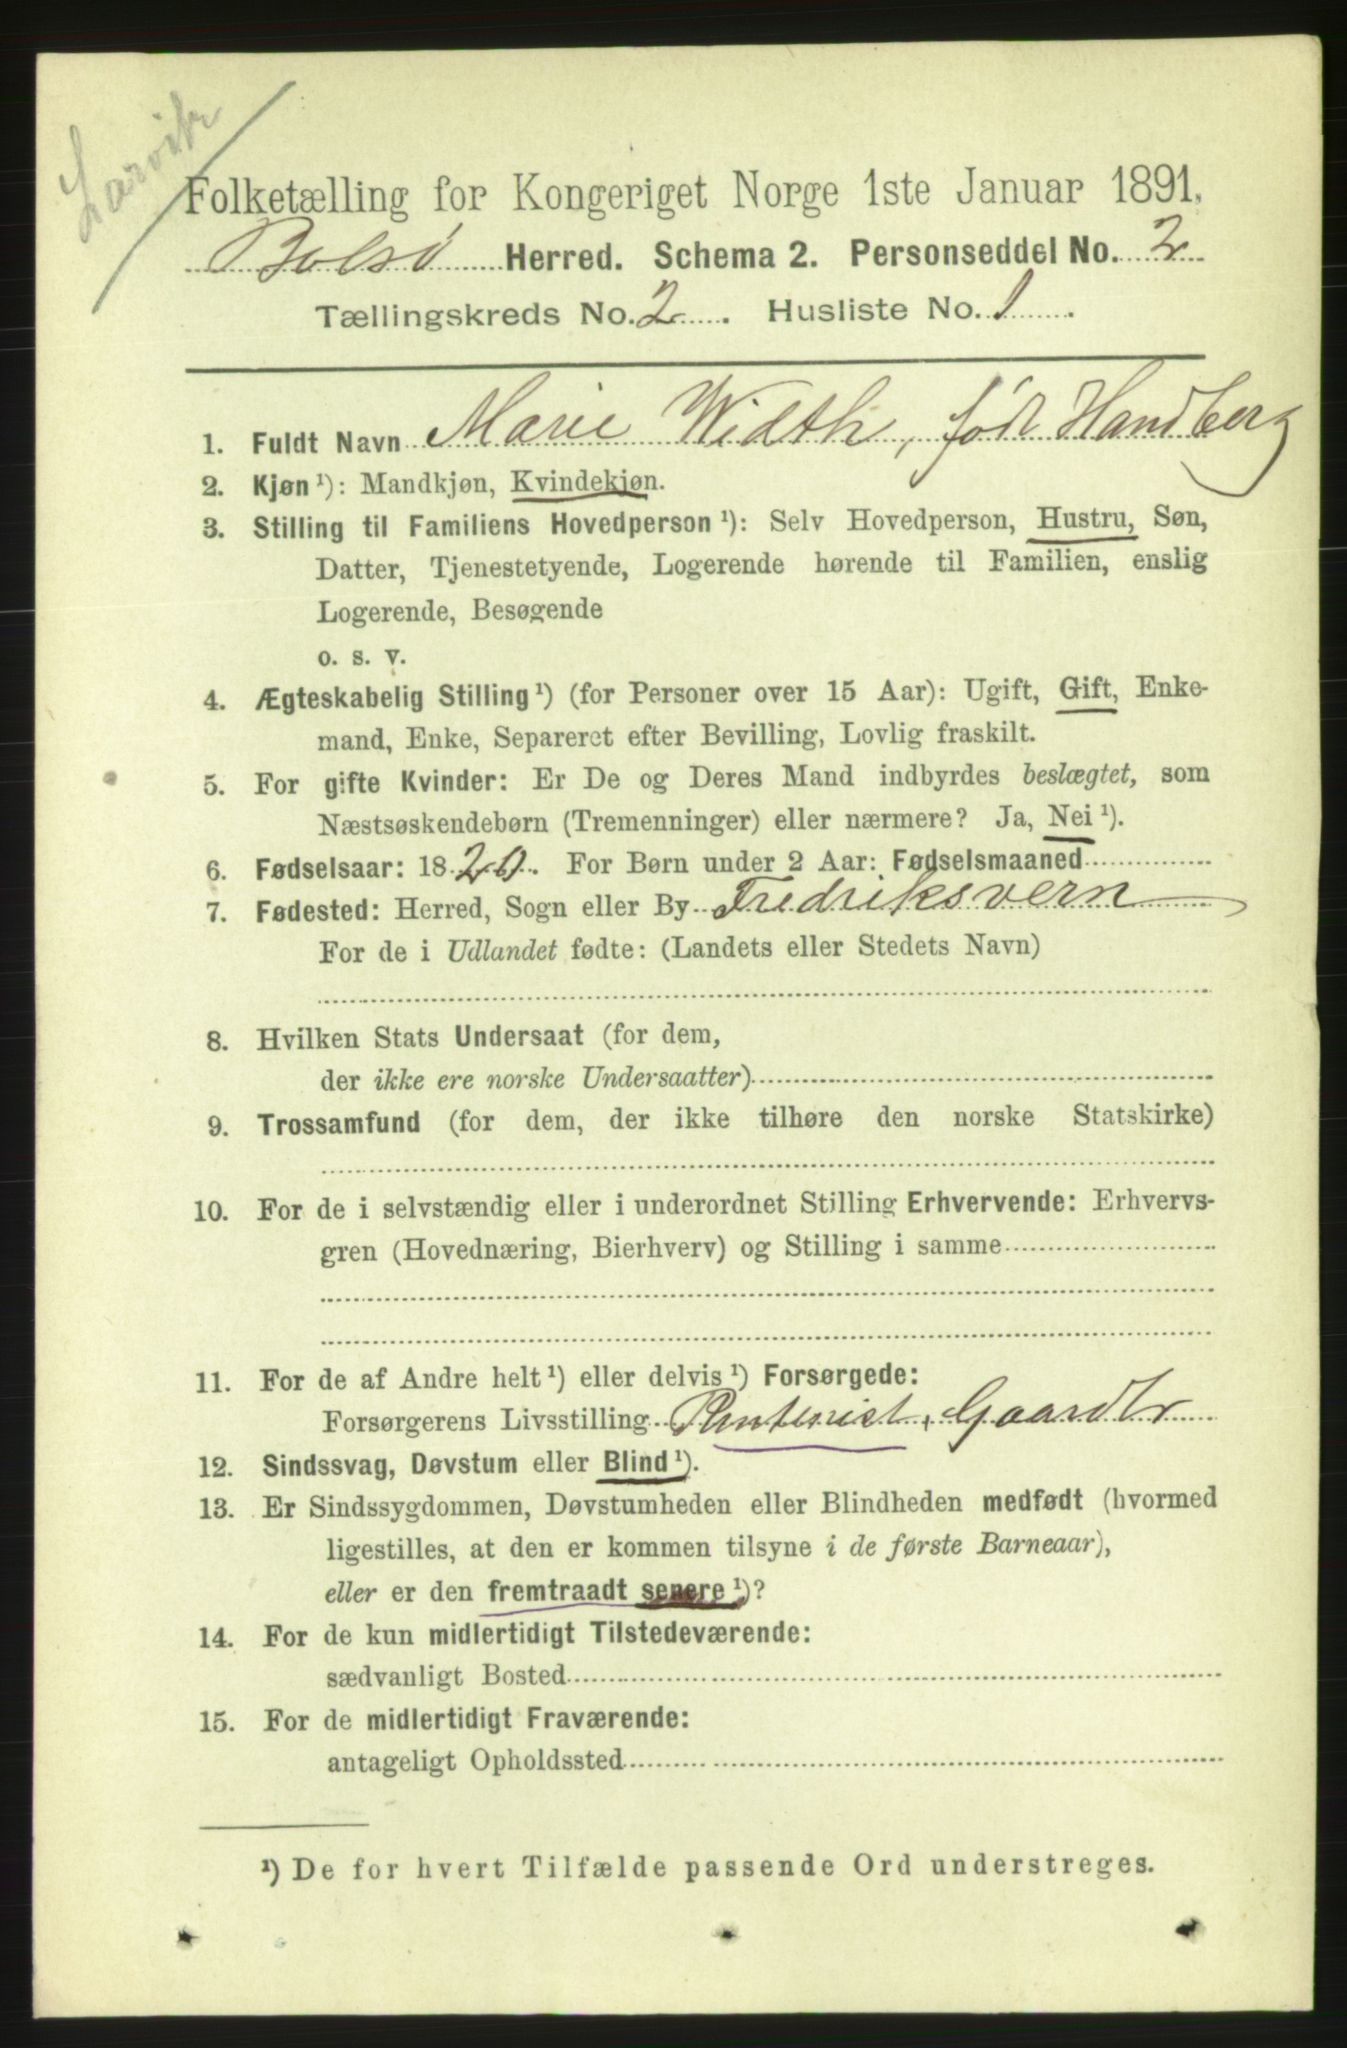 Larvik
Folketælling for Kongeriget Norge 1ste Januar 1891.
Bolsø Herred. Schema 2. Personseddel No. 2
Tællingskreds No. 2. Husliste No. 1.
1. Fuldt Navn Marie Width, født Handberg
2. Kjøn ¹): Mandkjøn, Kvindekjøn.
3. Stilling til Familiens Hovedperson ¹): Selv Hovedperson, Hustru, Søn,
Datter, Tjenestetyende, Logerende hørende til Familien, enslig
Logerende, Besøgende
o. s. v.
4. Ægteskabelig Stilling ¹) (for Personer over 15 Aar): Ugift, Gift, Enke-
mand, Enke, Separeret efter Bevilling, Lovlig fraskilt.
5. For gifte Kvinder: Er De og Deres Mand indbyrdes beslægtet, som
Næstsøskendebørn (Tremenninger) eller nærmere? Ja, Nei ¹).
6. Fødselsaar: 1820. For Børn under 2 Aar: Fødselsmaaned
7. Fødested: Herred, Sogn eller By Fredriksvern
For de i Udlandet fødte: (Landets eller Stedets Navn)
8. Hvilken Stats Undersaat (for dem,
der ikke ere norske Undersaatter)
9. Trossamfund (for dem, der ikke tilhøre den norske Statskirke)
10. For de i selvstændig eller i underordnet Stilling Erhvervende: Erhvervs-
gren (Hovednæring, Bierhverv) og Stilling i samme
11. For de af Andre helt ¹) eller delvis ¹) Forsørgede:
Forsørgerens Livsstilling Rentenist, Gaardbr
12. Sindssvag, Døvstum eller Blind ¹).
13. Er Sindssygdommen, Døvstumheden eller Blindheden medfødt (hvormed
ligestilles, at den er kommen tilsyne i de første Barneaar),
eller er den fremtraadt senere ¹)?
14. For de kun midlertidigt Tilstedeværende:
sædvanligt Bosted
15. For de midlertidigt Fraværende:
antageligt Opholdssted
¹) De for hvert Tilfælde passende Ord understreges.